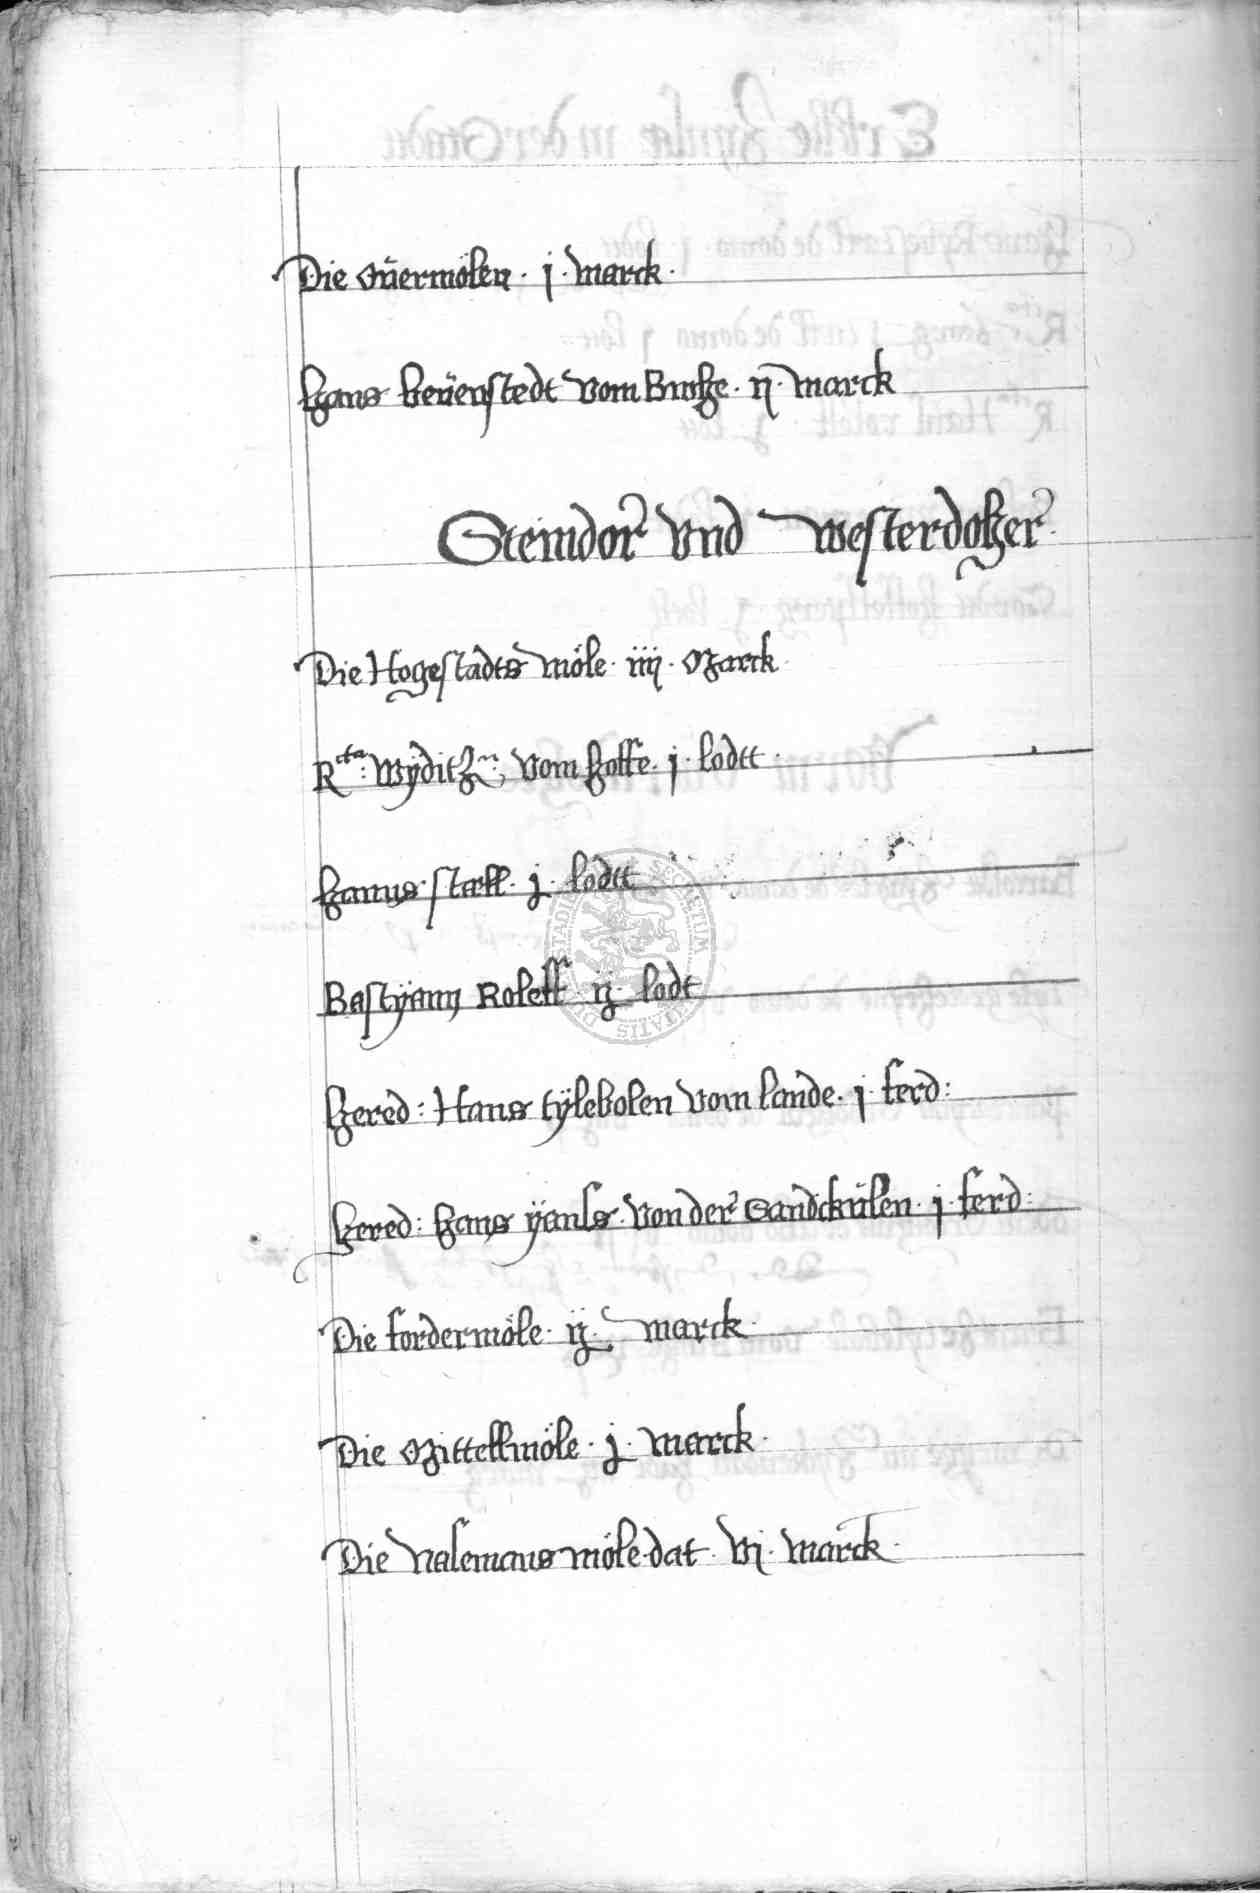 Die Ouermölen · j · marck ·
Hans beuenstedt vom Broke · ij · marck
Steindor vnd Westerdorƶer
Die Hogestadts möle · iiij · Marck
R^cta: Wÿditƶ vom hoffe · j · lodtt
Hanns staff · j · lodtt
Bastÿann Roleff ij lodt
Hered: Hans tÿlebolen vom lande · j · ferd:
Hered: Hans ÿanss von der Sandtkulen · j · ferd:
Die fordermöle · ij · marck
Die Mittellmöle · j · marck ·
Die nalemans möle dat · vj · marck ·